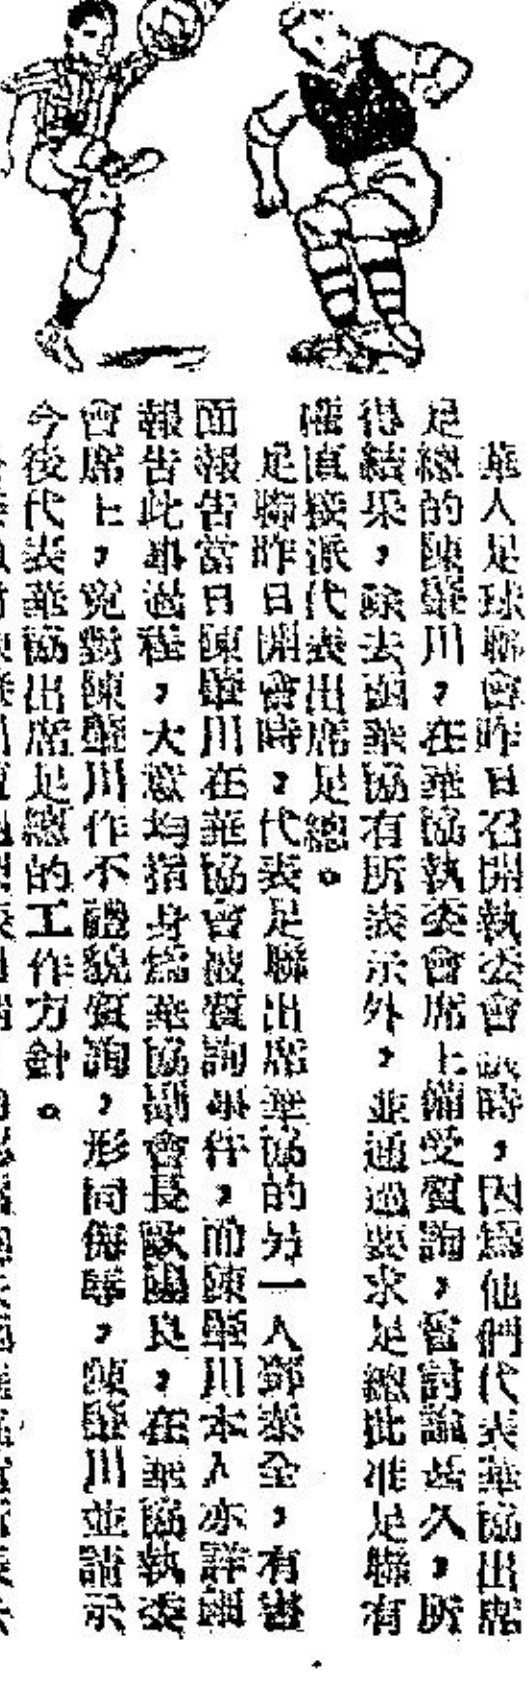 華人足球聯會昨日召開執委會議時，因爲他們代表華協出席
足總的陳肇川，在華協執委會席上備受質詢，曾討論甚久，所
得結果，除去函華協有所表示外，並通過要求足總批准足聯有
權直接派代表出席足總。
足聯昨日開會時，代表足聯出席華協的另一人鄧泰全，有書
面報告當日陳肇川在華協會被質詢事件，而陳肇川本人亦詳細
報告此事過程，大意均指身爲華協副會長歐陽良，在華協執委
會席上，竟對陳肇川作不禮貌質詢，形同侮辱，陳肇川並請示
今後代表華協出席足總的工作方針。